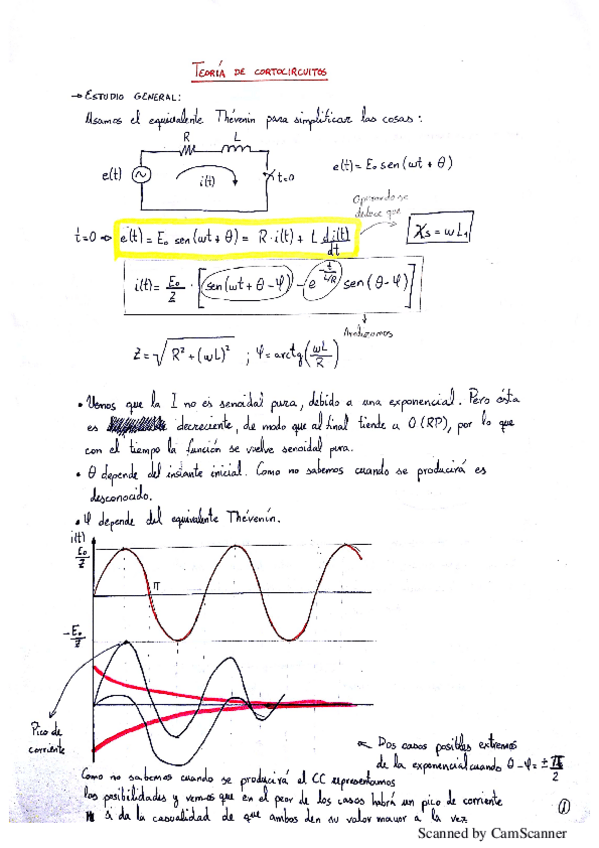 TEORÍA DE CORTOCIRCUITOS
→ ESTUDIO GENERAL:
Usamos el equivalente Thévenin para simplificar las cosas:
R L
e(t) i(t) t=0
e(t) = E₀ sen(ωt + θ)
Operando se
deduce que
Xs = ωL₁
t=0 ⇒ e(t) = E₀ sen(ωt + θ) = R·i(t) + L di(t)/dt
i(t) = E₀/Z · [sen(ωt + θ - φ) - e^(-t/(L/R)) sen(θ - φ)]
Analizamos
Z = √(R² + (ωL)²) ; φ = arctg(ωL/R)
• Vemos que la I no es senoidal pura, debido a una exponencial. Pero ésta
es decreciente, de modo que al final tiende a 0 (RP), por lo que
con el tiempo la función se vuelve senoidal pura.
• θ depende del instante inicial. Como no sabemos cuando se producirá es
desconocido.
• φ depende del equivalente Thévenin.
i(t)
E₀/Z
π
-E₀/Z
Pico de
corriente
Dos casos posibles extremos
de la exponencial cuando θ - φ = ± π/2
Como no sabemos cuando se producirá el CC representamos
las posibilidades y vemos que en el peor de los casos habrá un pico de corriente
si da la casualidad de que ambos den su valor mayor a la vez
①
Scanned by CamScanner